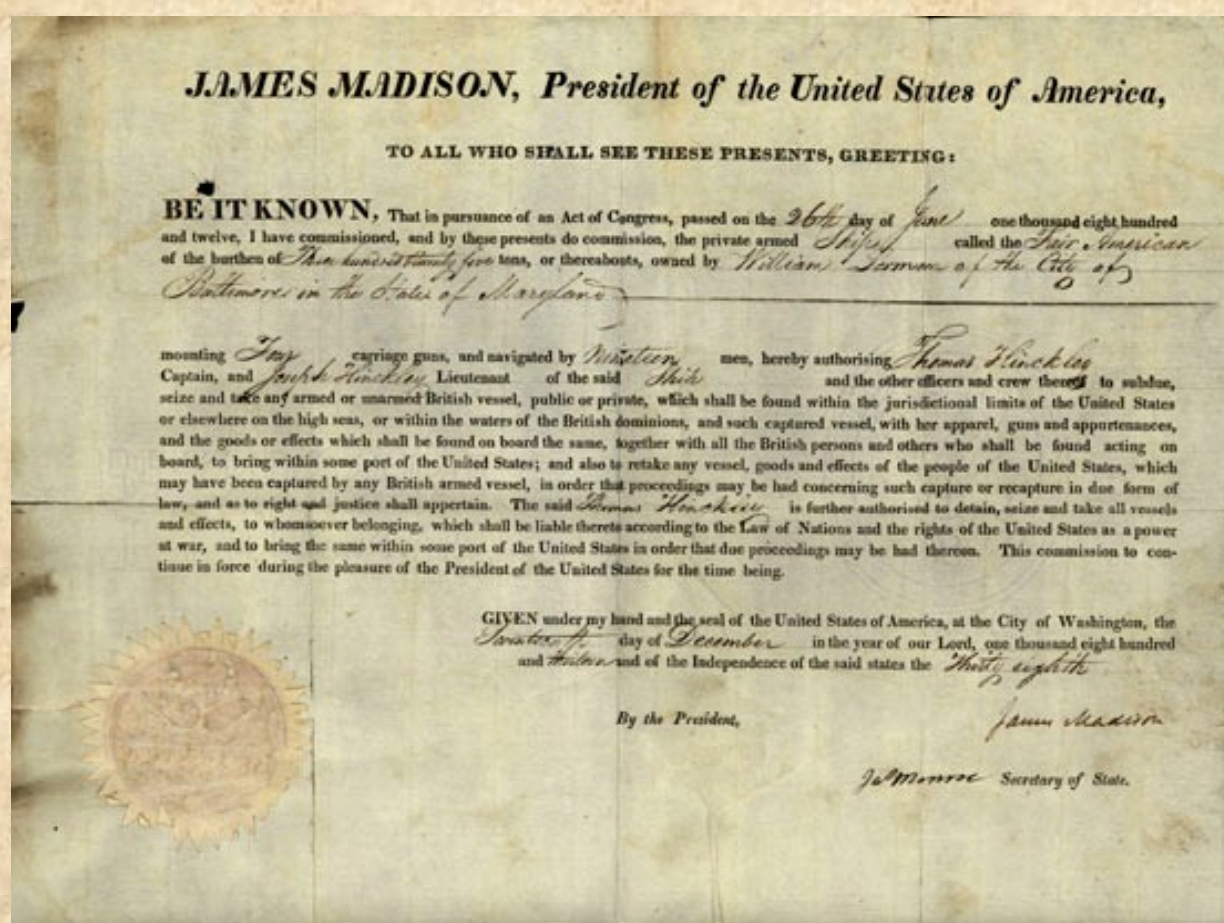 JAMES MADISON, President of the United States of America,
TO ALL WHO SHALL SEE THESE PRESENTS, GREETING:
BE IT KNOWN, That in pursuance of an Act of Congress, passed on the 26th day of June one thousand eight hundred
and twelve, I have commissioned, and by these presents do commission, the private armed Ship called the Fair American
of the burthen of Three hundred twenty five tons, or thereabouts, owned by William of the City of
Baltimore in the State of Maryland
mounting Four carriage guns, and navigated by Nineteen men, hereby authorising Thomas Hinckley
Captain, and Joseph Hinckley Lieutenant of the said Ship and the other officers and crew thereof to subdue,
seize and take any armed or unarmed British vessel, public or private, which shall be found within the jurisdictional limits of the United States
or elsewhere on the high seas, or within the waters of the British dominions, and such captured vessel, with her apparel, guns and appurtenances,
and the goods or effects which shall be found on board the same, together with all the British persons and others who shall be found acting on
board, to bring within some port of the United States; and also to retake any vessel, goods and effects of the people of the United States, which
may have been captured by any British armed vessel, in order that proceedings may be had concerning such capture or recapture in due form of
law, and as to right and justice shall appertain. The said Thomas Hinckley is further authorised to detain, seize and take all vessels
and effects, to whomsoever belonging, which shall be liable thereto according to the Law of Nations and the rights of the United States as a power
at war, and to bring the same within some port of the United States in order that due proceedings may be had thereon. This commission to con-
tinue in force during the pleasure of the President of the United States for the time being.
GIVEN under my hand and the seal of the United States of America, at the City of Washington, the
day of December in the year of our Lord, one thousand eight hundred
and and of the Independence of the said states the Thirty eighth
By the President,
James Madison
Jas Monroe Secretary of State.